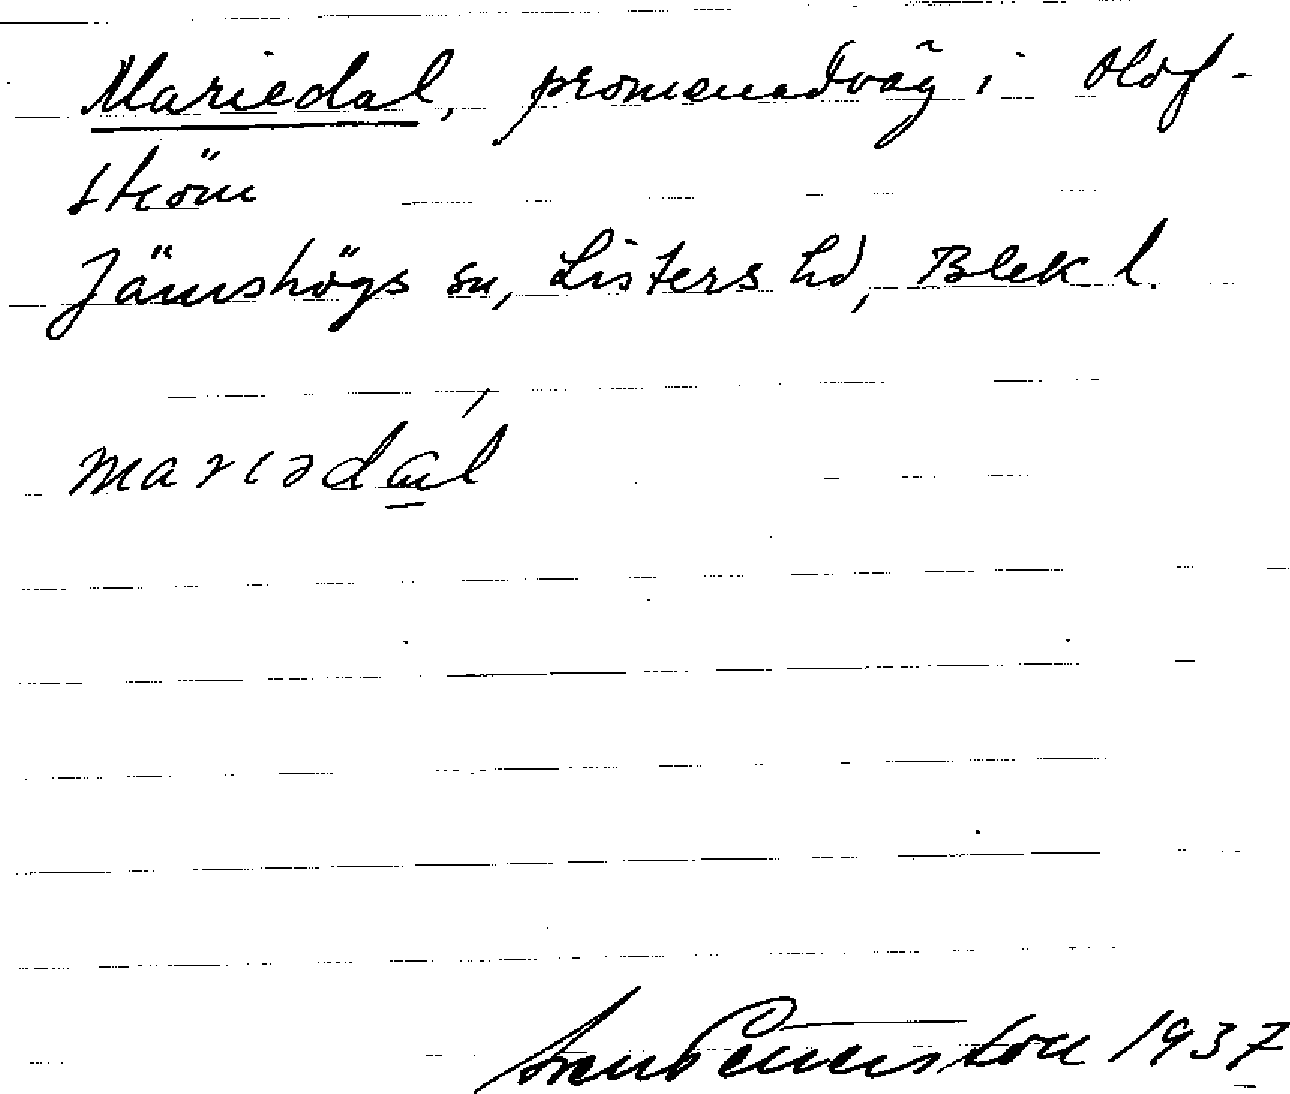 Mariedal, promenadväg i Olof-
ström
Jämshögs sn, Listers hd, Blek l.
mariədal
1937